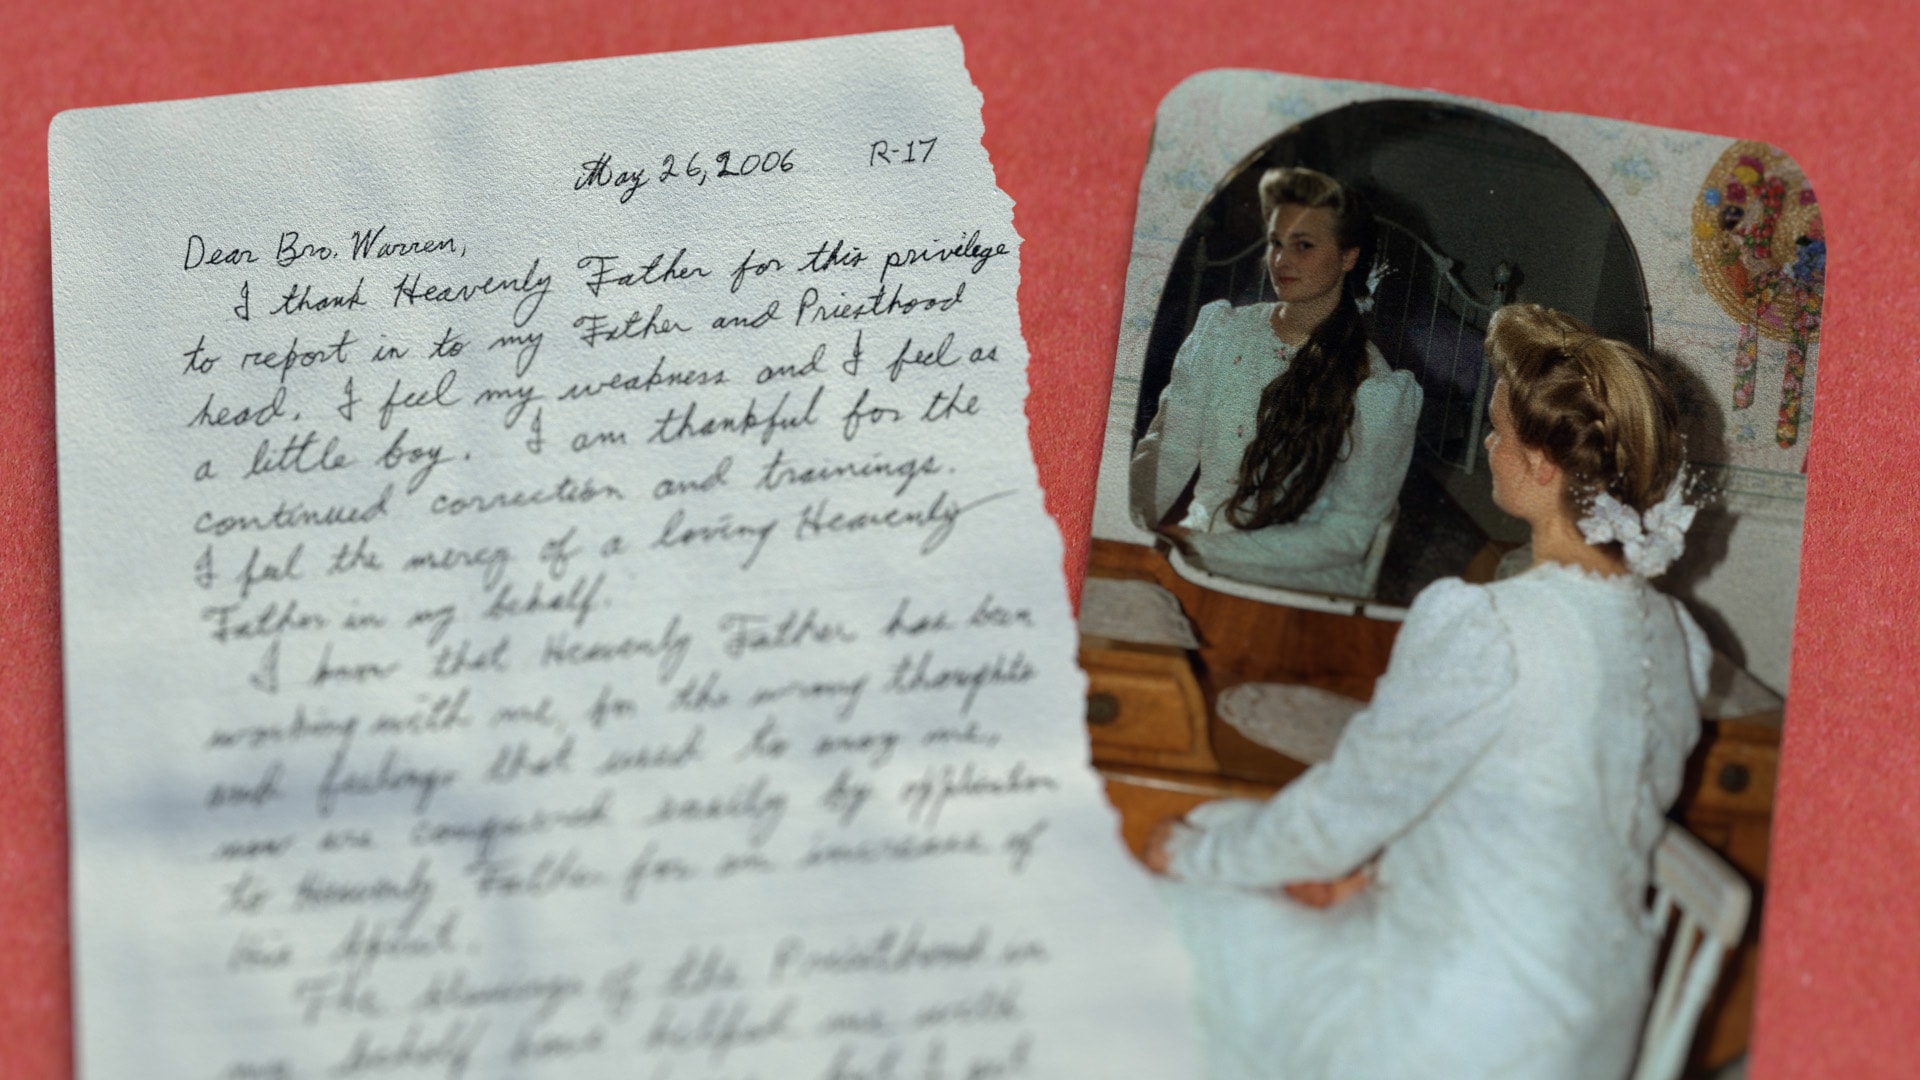 May 26, 2006 R-17
Dear Bro. Warren,
I thank Heavenly Father for this privilege
to report in to my Father and Priesthood
head. I feel my weakness and I feel as
a little boy. I am thankful for the
continued correction and trainings.
I feel the mercy of a loving Heavenly
Father in my behalf.
I know that Heavenly Father has been
working with me, for the wrong thoughts
and feelings that used to
now are conquered easily by
to Heavenly Father for an increase of
his spirit.
The blessings of the Priesthood in
my behalf have helped me with
but I